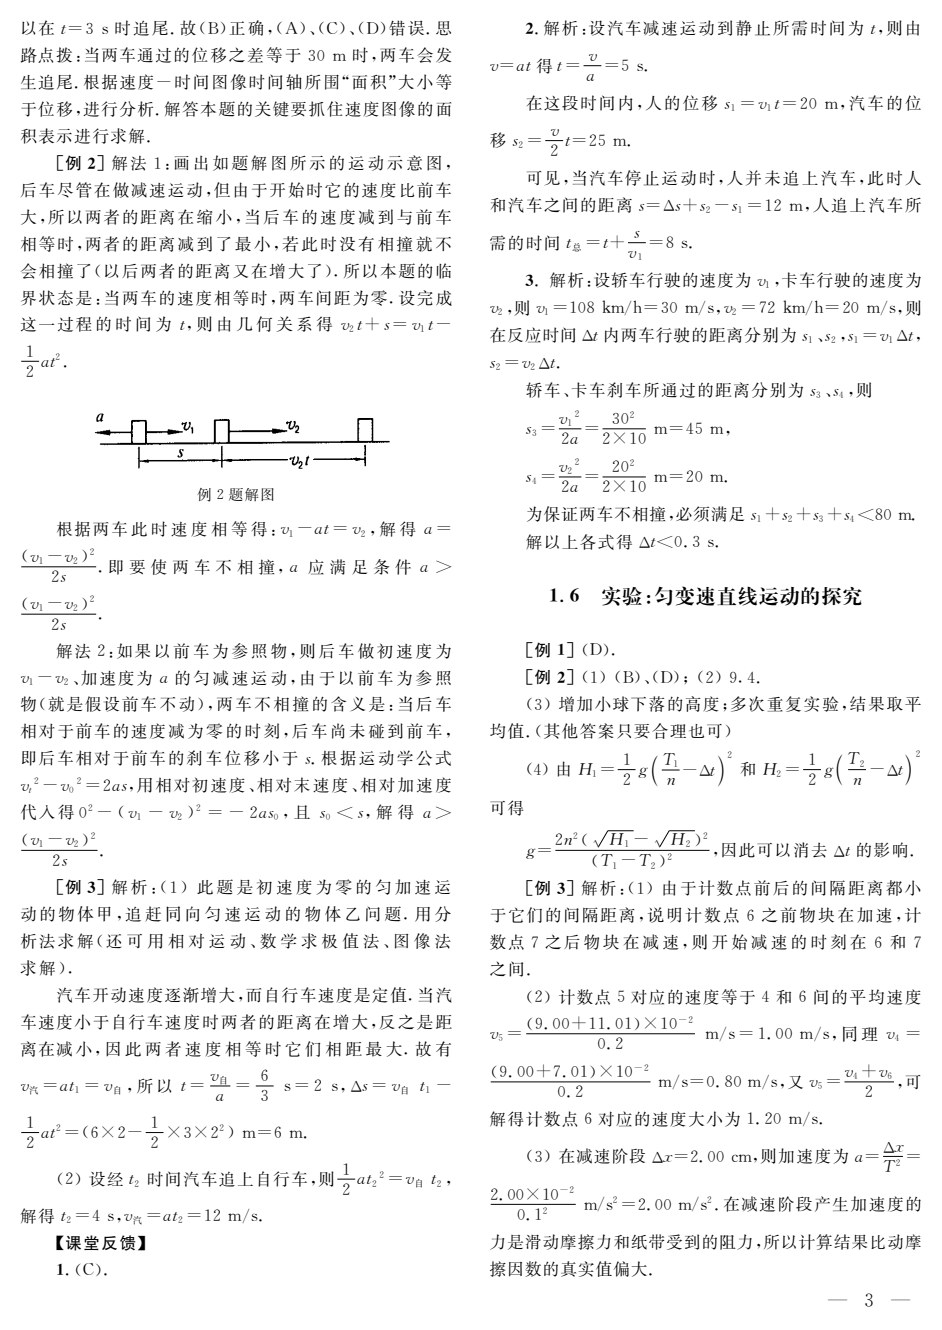 以在 t=3 s 时追尾. 故(B)正确,(A)、(C)、(D)错误. 思
路点拨:当两车通过的位移之差等于 30 m 时,两车会发
生追尾. 根据速度－时间图像时间轴所围“面积”大小等
于位移,进行分析. 解答本题的关键要抓住速度图像的面
积表示进行求解.
[例 2] 解法 1:画出如题解图所示的运动示意图,
后车尽管在做减速运动,但由于开始时它的速度比前车
大,所以两者的距离在缩小,当后车的速度减到与前车
相等时,两者的距离减到了最小,若此时没有相撞就不
会相撞了(以后两者的距离又在增大了). 所以本题的临
界状态是:当两车的速度相等时,两车间距为零. 设完成
这一过程的时间为 t,则由几何关系得 v₂t＋s＝v₁t－
1/2 at².
a v₁ v₂
s v₂t
例 2 题解图
根据两车此时速度相等得:v₁－at＝v₂,解得 a＝
(v₁－v₂)²/2s. 即要使两车不相撞, a 应满足条件 a＞
(v₁－v₂)²/2s.
解法 2:如果以前车为参照物,则后车做初速度为
v₁－v₂、加速度为 a 的匀减速运动,由于以前车为参照
物(就是假设前车不动),两车不相撞的含义是:当后车
相对于前车的速度减为零的时刻,后车尚未碰到前车,
即后车相对于前车的刹车位移小于 s. 根据运动学公式
vₜ²－v₀²＝2as,用相对初速度、相对末速度、相对加速度
代人得 0²－(v₁－v₂)²＝－2as₀,且 s₀＜s,解得 a＞
(v₁－v₂)²/2s.
[例 3] 解析:(1) 此题是初速度为零的匀加速运
动的物体甲,追赶同向匀速运动的物体乙问题. 用分
析法求解(还可用相对运动、数学求极值法、图像法
求解).
汽车开动速度逐渐增大,而自行车速度是定值. 当汽
车速度小于自行车速度时两者的距离在增大,反之是距
离在减小,因此两者速度相等时它们相距最大. 故有
v汽＝at₁＝v自,所以 t＝v自/a＝6/3 s＝2 s,Δs＝v自 t₁－
1/2 at²＝(6×2－1/2×3×2²) m＝6 m.
(2) 设经 t₂ 时间汽车追上自行车,则 1/2 at₂²＝v自 t₂,
解得 t₂＝4 s,v汽＝at₂＝12 m/s.
【课堂反馈】
1. (C).
2. 解析:设汽车减速运动到静止所需时间为 t,则由
v＝at 得 t＝v/a＝5 s.
在这段时间内,人的位移 s₁＝v₁t＝20 m,汽车的位
移 s₂＝v/2 t＝25 m.
可见,当汽车停止运动时,人并未追上汽车,此时人
和汽车之间的距离 s＝Δs＋s₂－s₁＝12 m,人追上汽车所
需的时间 t总＝t＋s/v₁＝8 s.
3. 解析:设轿车行驶的速度为 v₁,卡车行驶的速度为
v₂,则 v₁＝108 km/h＝30 m/s,v₂＝72 km/h＝20 m/s,则
在反应时间 Δt 内两车行驶的距离分别为 s₁、s₂,s₁＝v₁Δt,
s₂＝v₂Δt.
轿车、卡车刹车所通过的距离分别为 s₃、s₄,则
s₃＝v₁²/2a＝30²/(2×10) m＝45 m,
s₄＝v₂²/2a＝20²/(2×10) m＝20 m.
为保证两车不相撞,必须满足 s₁＋s₂＋s₃＋s₄＜80 m.
解以上各式得 Δt＜0.3 s.
1.6 实验:匀变速直线运动的探究
[例 1] (D).
[例 2] (1) (B)、(D); (2) 9.4.
(3) 增加小球下落的高度;多次重复实验,结果取平
均值. (其他答案只要合理也可)
(4) 由 H₁＝1/2 g(T₁/n－Δt)² 和 H₂＝1/2 g(T₂/n－Δt)²
可得
g＝2n²(√H₁－√H₂)²/(T₁－T₂)²,因此可以消去 Δt 的影响.
[例 3] 解析:(1) 由于计数点前后的间隔距离都小
于它们的间隔距离,说明计数点 6 之前物块在加速,计
数点 7 之后物块在减速,则开始减速的时刻在 6 和 7
之间.
(2) 计数点 5 对应的速度等于 4 和 6 间的平均速度
v₅＝(9.00＋11.01)×10⁻²/0.2 m/s＝1.00 m/s,同理 v₄＝
(9.00＋7.01)×10⁻²/0.2 m/s＝0.80 m/s,又 v₅＝(v₄＋v₆)/2,可
解得计数点 6 对应的速度大小为 1.20 m/s.
(3) 在减速阶段 Δx＝2.00 cm,则加速度为 a＝Δx/T²＝
2.00×10⁻²/0.1² m/s²＝2.00 m/s². 在减速阶段产生加速度的
力是滑动摩擦力和纸带受到的阻力,所以计算结果比动摩
擦因数的真实值偏大.
— 3 —